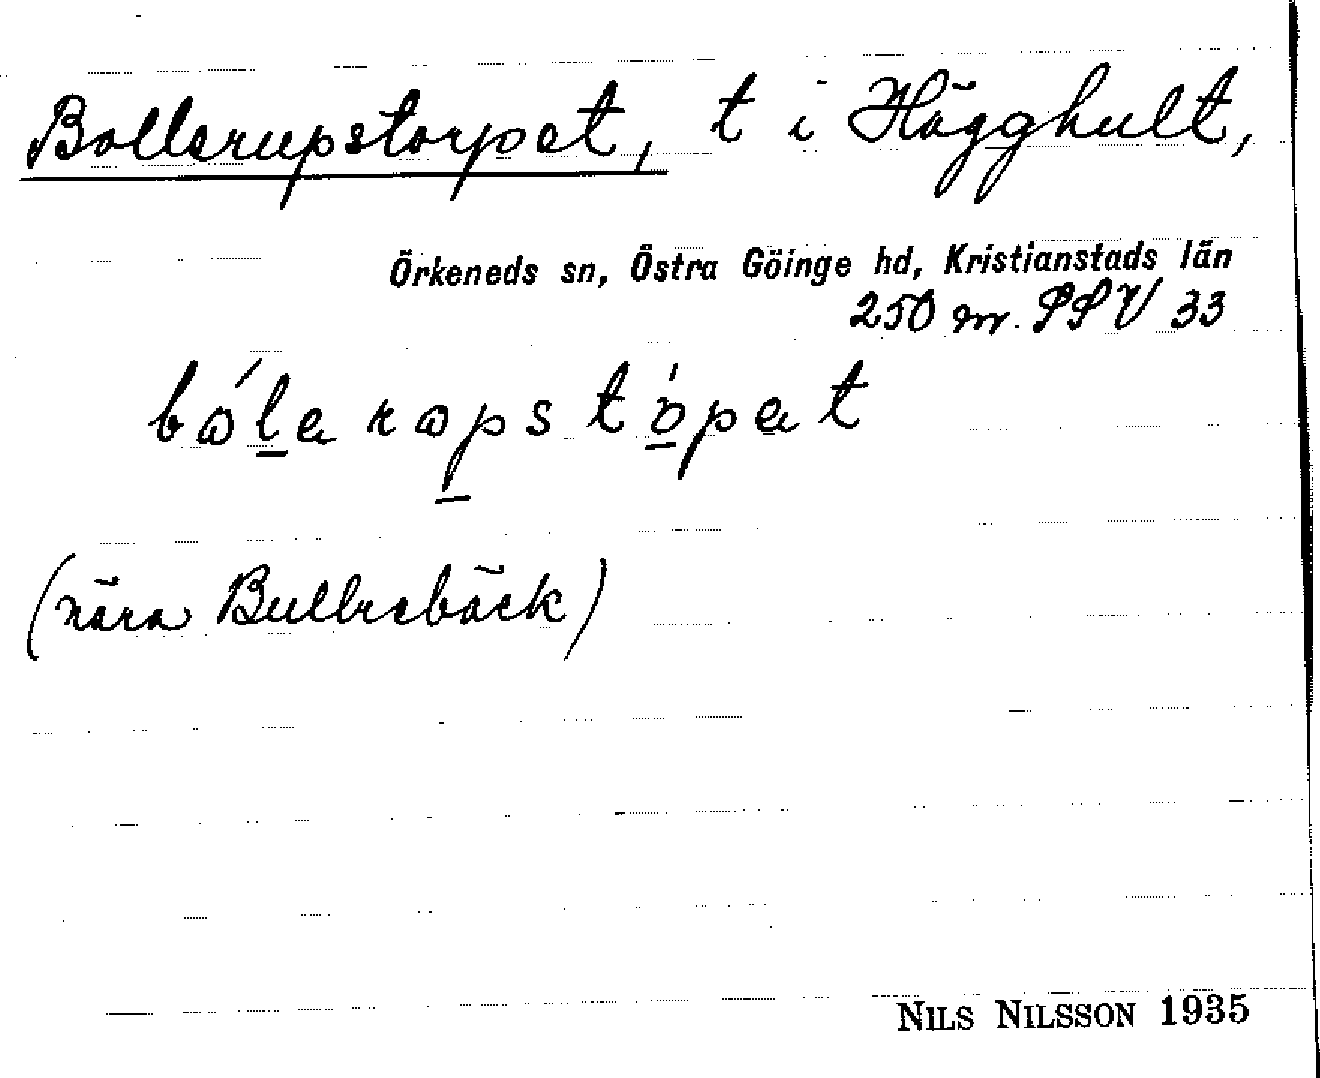 Bollerupstorpet, t i Hägghult,
Örkeneds sn, Östra Göinge hd, Kristianstads län
250 m. SSV 33
(nära Bullrebäck)
NILS NILSSON 1935